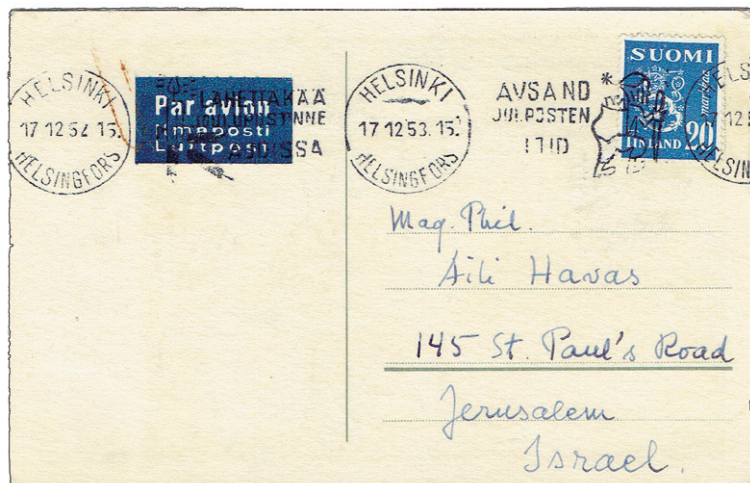 HELSINKI
17 12 53. 15.
HELSINGFORS
Par avion
Lentoposti
Luftpost
LÄHETTÄKÄÄ
JOULUPOSTINNE
AJOISSA
HELSINKI
17 12 53. 15.
HELSINGFORS
AVSÄND
JULPOSTEN
I TID
SUOMI
markkaa
20
FINLAND
17 12 5
Mag. Phil.
Aili Havas
145 St. Paul's Road
Jerusalem
Israel.